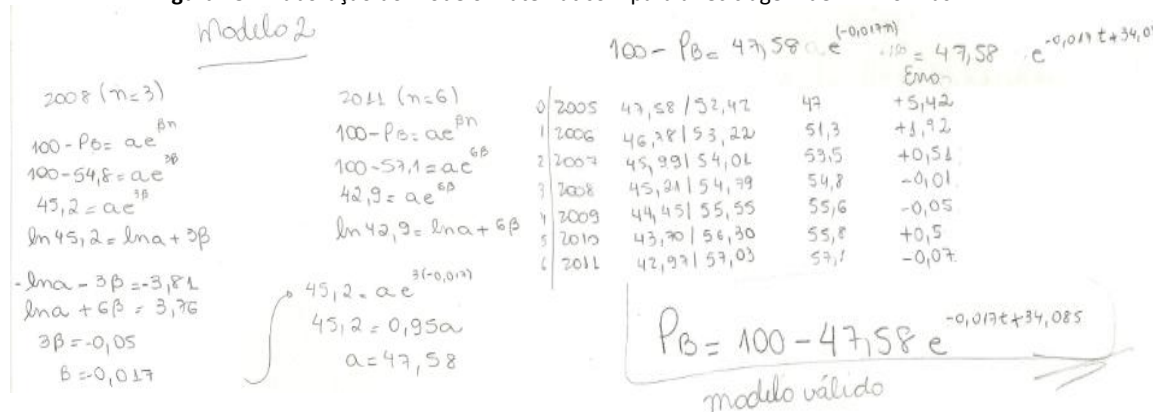 modelo 2
2008 (n=3)
100 - PB = ae^βn
100 - 54,8 = ae^3β
45,2 = ae^3β
ln 45,2 = ln a + 3β
- ln a - 3β = -3,81
ln a + 6β = 3,76
3β = -0,05
β = -0,017
2011 (n=6)
100 - PB = ae^βn
100 - 57,1 = ae^6β
42,9 = ae^6β
ln 42,9 = ln a + 6β
45,2 = ae^3(-0,017)
45,2 = 0,95a
a = 47,58
100 - PB = 47,58 e^(-0,017n) = 47,58 . e^-0,017t+34,0
Erro
0 | 2005 47,58 / 52,42 47 +5,42
1 | 2006 46,78 | 53,22 51,3 +1,92
2 | 2007 45,99 | 54,01 53,5 +0,51
3 | 2008 45,21 | 54,79 54,8 -0,01
4 | 2009 44,45 | 55,55 55,6 -0,05
5 | 2010 43,70 | 56,30 55,8 +0,5
6 | 2011 42,97 | 57,03 57,1 -0,07
PB = 100 - 47,58 e^-0,017t+34,085
modelo válido